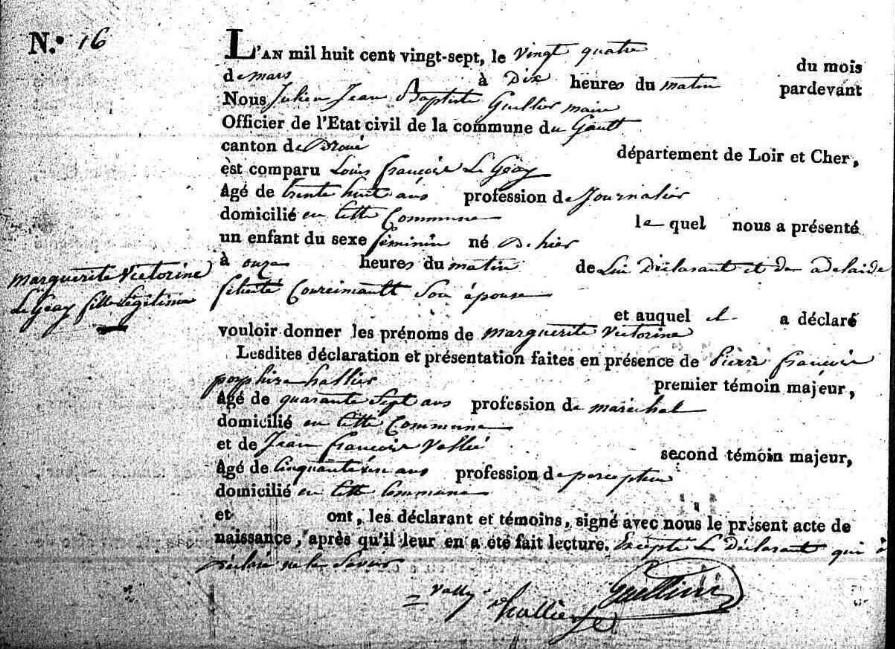 N.° 16
L'AN mil huit cent vingt-sept, le vingt quatre du mois
de mars à Dix heures du matin pardevant
Nous Julien Jean Baptiste Gaullier maire
Officier de l'Etat civil de la commune du Gault
canton de Droué département de Loir et Cher,
est comparu Louis François Le Géay
âgé de trente huit ans profession de Journalier
domicilié en cette Commune le quel nous a présenté
un enfant du sexe féminin né D'hier
à onze heures du matin de Lui Déclarant et de adelaide
felicité Courcimault Son épouse
Marguerite Victorine
Le Géay fille Légitime
et auquel il a déclaré
vouloir donner les prénoms de Marguerite Victorine
Lesdites déclaration et présentation faites en présence de Pierre françois
porphire hallier premier témoin majeur,
âgé de quarante Sept ans profession de maréchal
domicilié en cette Commune
et de Jean françois Vallée second témoin majeur,
âgé de Cinquante un ans profession de percepteur
domicilié en cette Commune
et ont, les déclarant et témoins, signé avec nous le présent acte de
naissance, après qu'il leur en a été fait lecture. Excepté Le Déclarant qui a
déclaré ne le Savoir
hallier